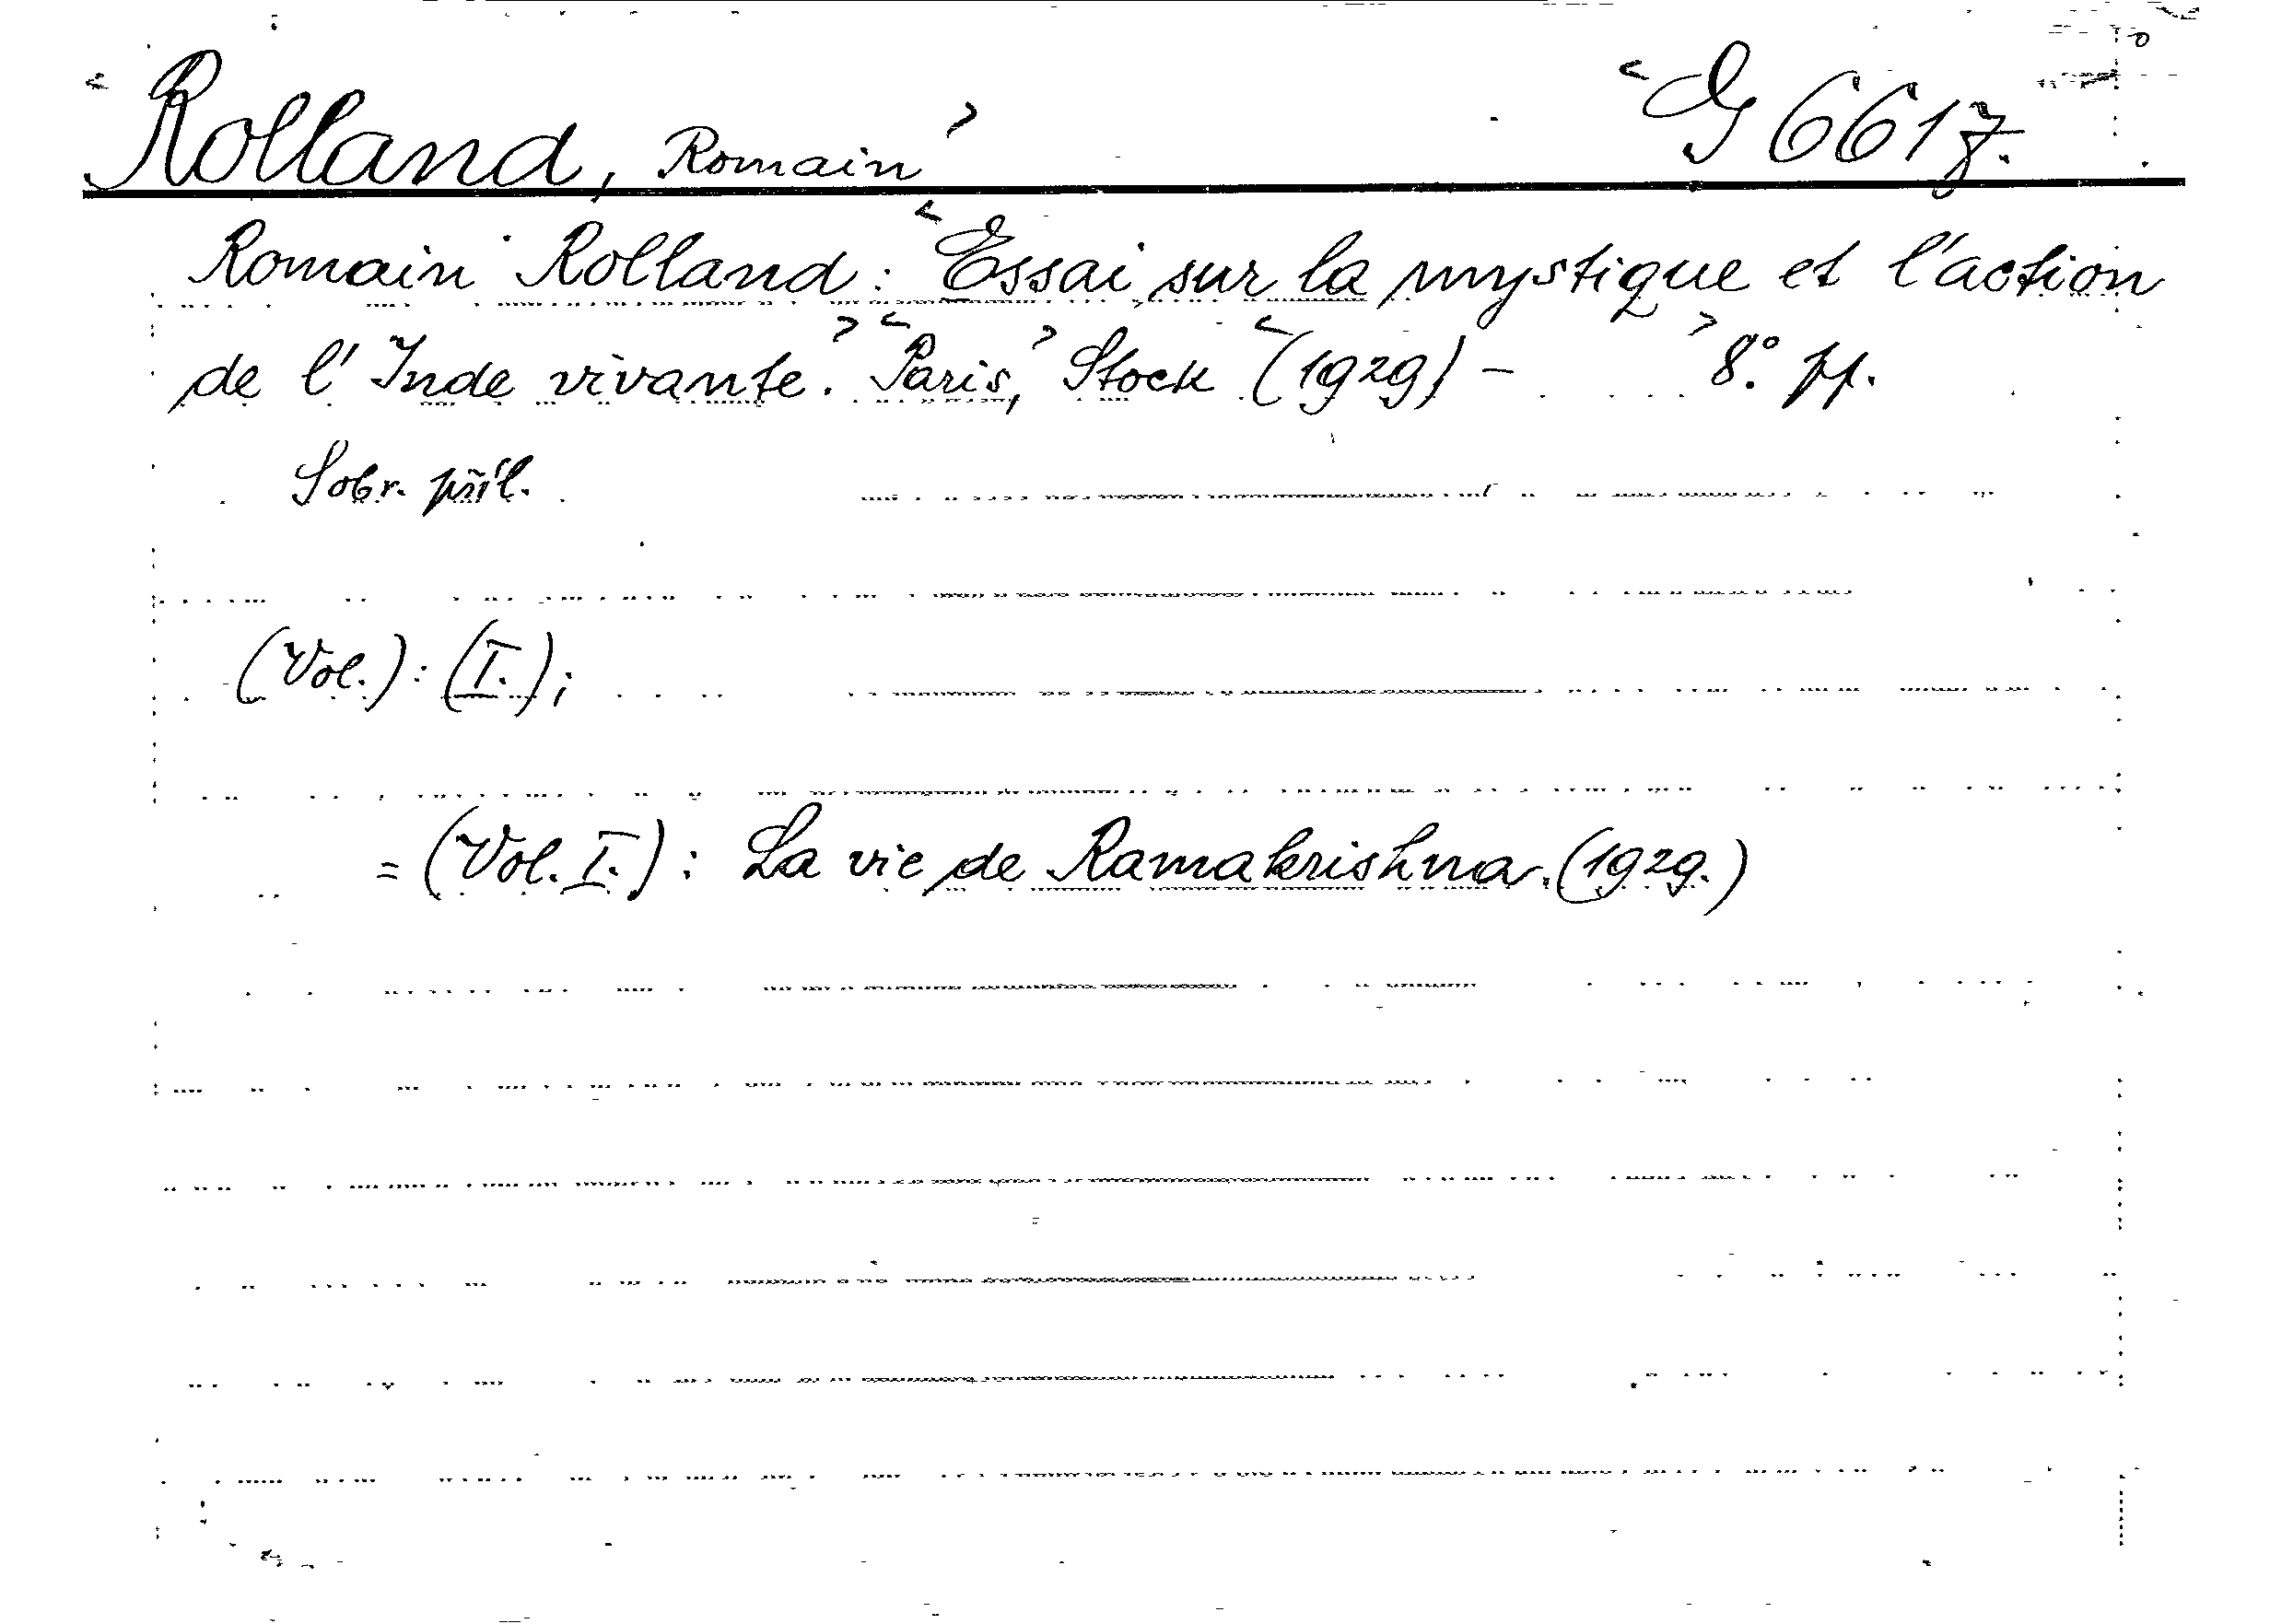 <Rolland, Romain> <G 6617.
Romain Rolland: <Essai sur la mystique et l'action
de l'Inde vivante.> <Paris,> Stock <(1929) - > 8° pp.
Sobr. příl.
(Vol.): (I.);
= (Vol. I.): La vie de Ramakrishna. (1929.)